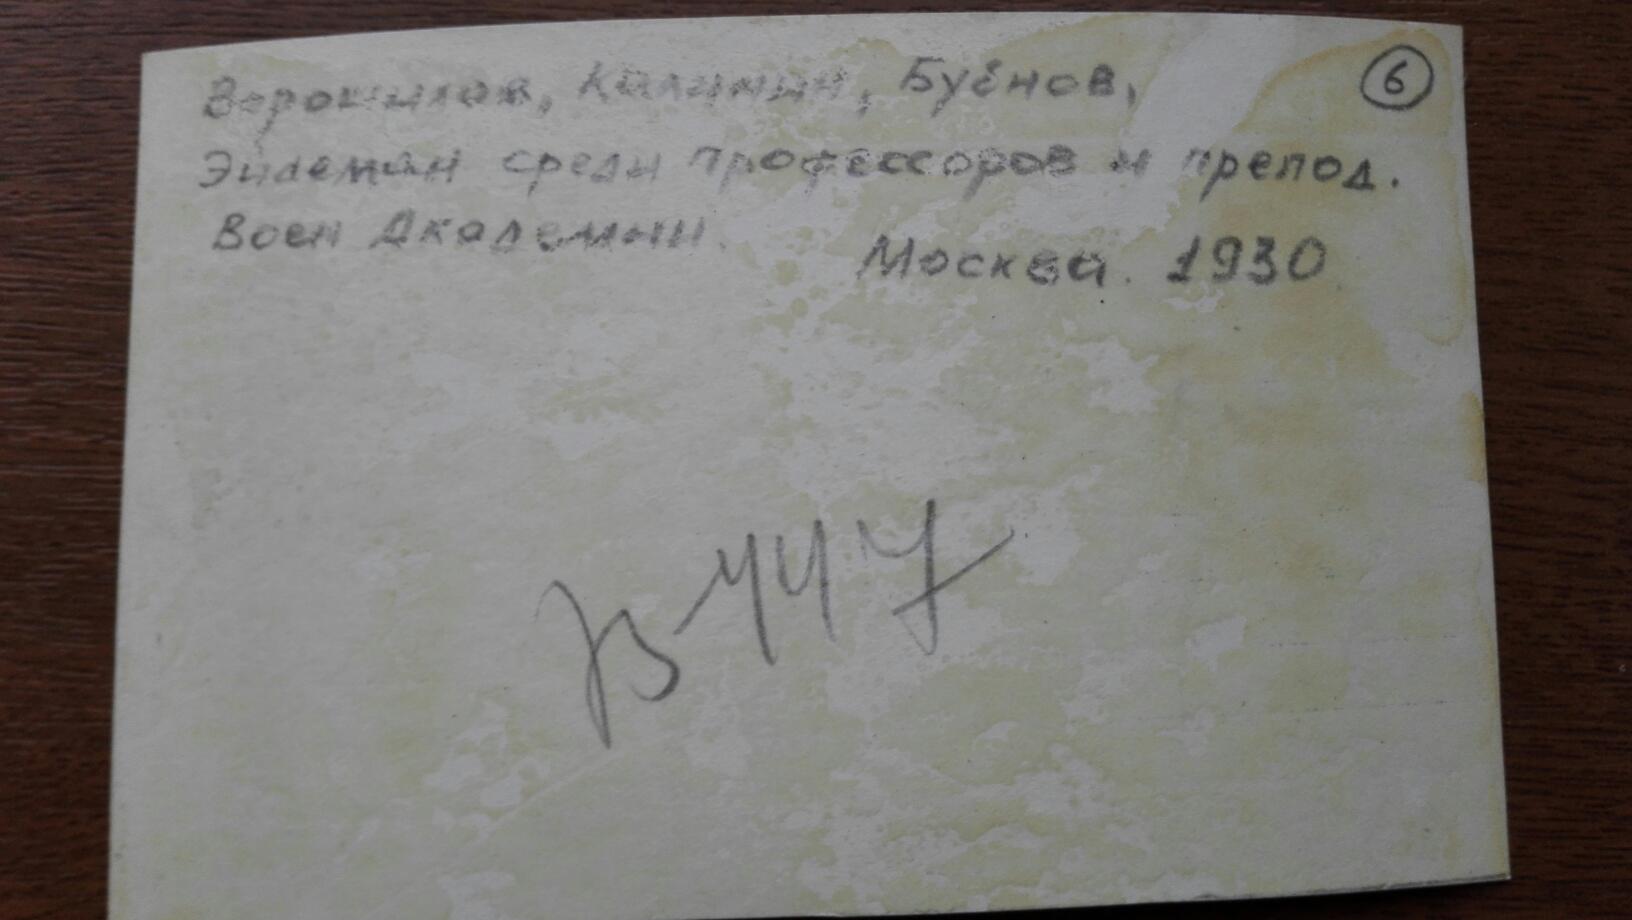 Ворошилов, Калинин, Бубнов, 6
Эйдеман среди профессоров и препод.
Воен Академии.
Москва. 1930